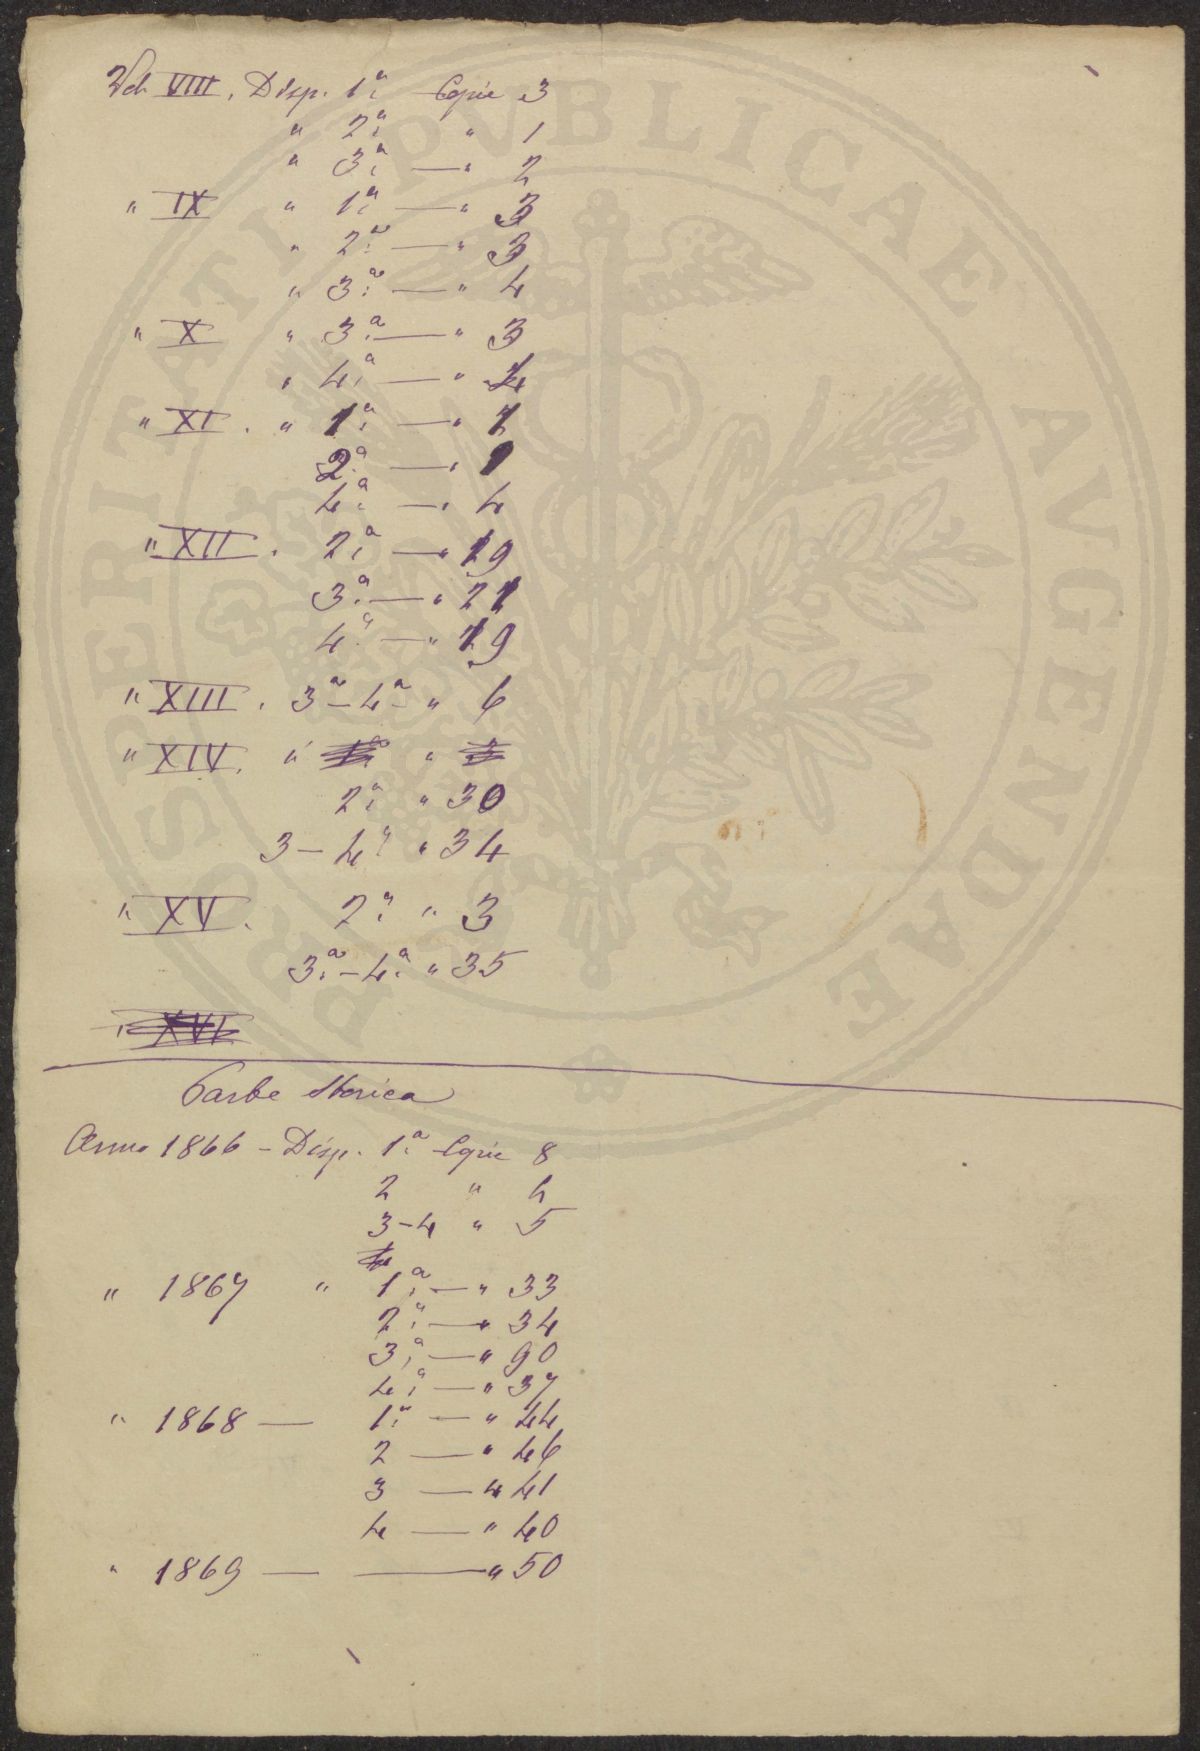 Vol. VIII. Disp. 1ª Copie 3
" 2ª " 1
" 3ª — " 2
" IX " 1ª — " 3
" 2ª — " 3
" 3ª — " 4
" X " 3ª — " 3
" 4ª — "
" XI. " 1ª — " 1
2ª — " 1
4ª — " 4
" XII. 2ª — " 19
3ª — " 21
4ª — " 19
" XIII. 3ª - 4ª " 6
" XIV. "
2ª " 30
3 - 4ª " 34
" XV. 2ª " 3
3ª - 4ª " 35
" XVI.
Parte Storica
Anno 1866 - Disp. 1ª Copie 8
2 " 4
3-4 " 5
4
" 1867 " 1ª — " 33
2ª — " 34
3ª — " 90
4ª — " 37
" 1868 — 1ª — " 44
2 — " 46
3 — " 41
4 — " 40
" 1869 — — " 50
PROSPERITATI PVBLICAE AVGENDAE